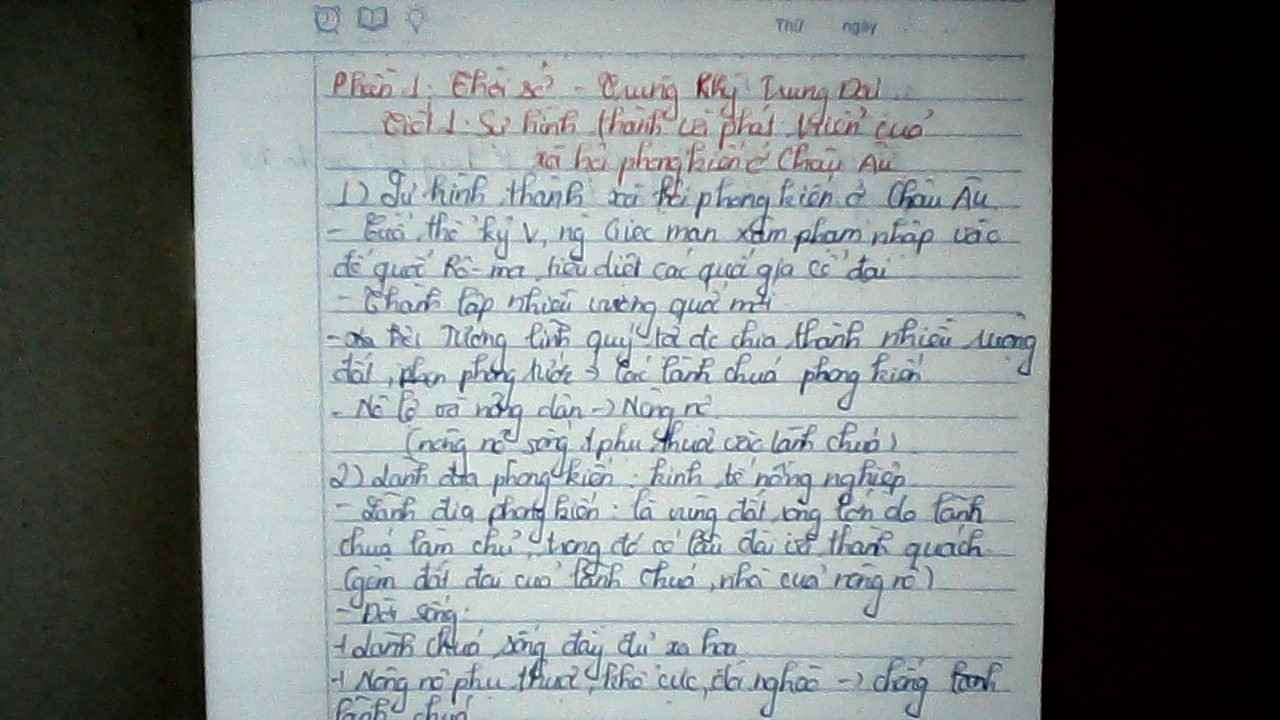 Thứ ngày
Phần 1: Thời sơ - Trung Kỳ Trung Đại
Tiết 1: Sự hình thành và phát triển của
xã hội phong kiến ở Châu Âu
1) Sự hình thành xã hội phong kiến ở Châu Âu
- Cuối thế kỷ V, ng Giéc man xâm phạm nhập vào
đế quốc Rô-ma tiêu diệt các quốc gia cổ đại
- Thành lập nhiều vương quốc mới
- Tướng lĩnh quý tộc đc chia thành nhiều ruộng
đất, phan phong tước → Các lãnh chúa phong kiến
- Nô lệ và nông dân → Nông nô
(nông nô sống phụ thuộc vào lãnh chúa)
2) Lãnh địa phong kiến: kinh tế nông nghiệp
- Lãnh địa phong kiến: là vùng đất rộng lớn do lãnh
chúa làm chủ, trong đó có lâu đài và thành quách
(gồm đất đai của lãnh chúa, nhà của nông nô)
- Đời sống:
+ Lãnh chúa sống đầy đủ xa hoa
+ Nông nô phụ thuộc, khổ cực, đói nghèo → chống lãnh
lãnh chúa